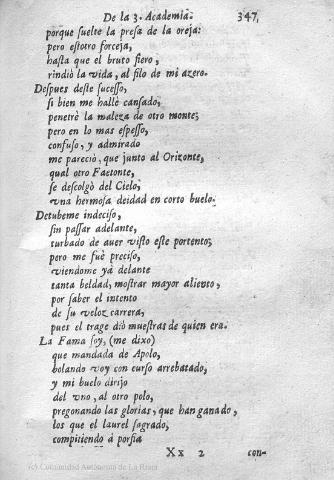 De la 3. Academia. 347,
porque ſuelte la preſa de la oreja:
pero eſtotro forceja,
haſta que el bruto fiero,
rindiò la vida, al filo de mi azero.
Deſpues deſte ſuceſſo,
ſi bien me hallè canſado,
penetrè la maleza de otro monte;
pero en lo mas eſpeſſo,
confuſo, y admirado
me pareciò, que junto al Orizonte,
qual otro Faetonte,
ſe deſcolgò del Cielo,
vna hermoſa deidad en corto buelo.
Detubeme indeciſo,
ſin paſſar adelante,
turbado de auer viſto eſte portento;
pero me fuè preciſo,
viendome yà delante
tanta beldad, moſtrar mayor aliento,
por ſaber el intento
de ſu veloz carrera,
pues el trage diò mueſtras de quien era.
La Fama ſoy, (me dixo)
que mandada de Apolo,
bolando voy con curſo arrebatado,
y mi buelo dirijo
del vno, al otro polo,
pregonando las glorias, que han ganado,
los que el laurel ſagrado,
compitiendo à porfia
Xx 2 con-
(c) Comunidad Autónoma de La Rioja